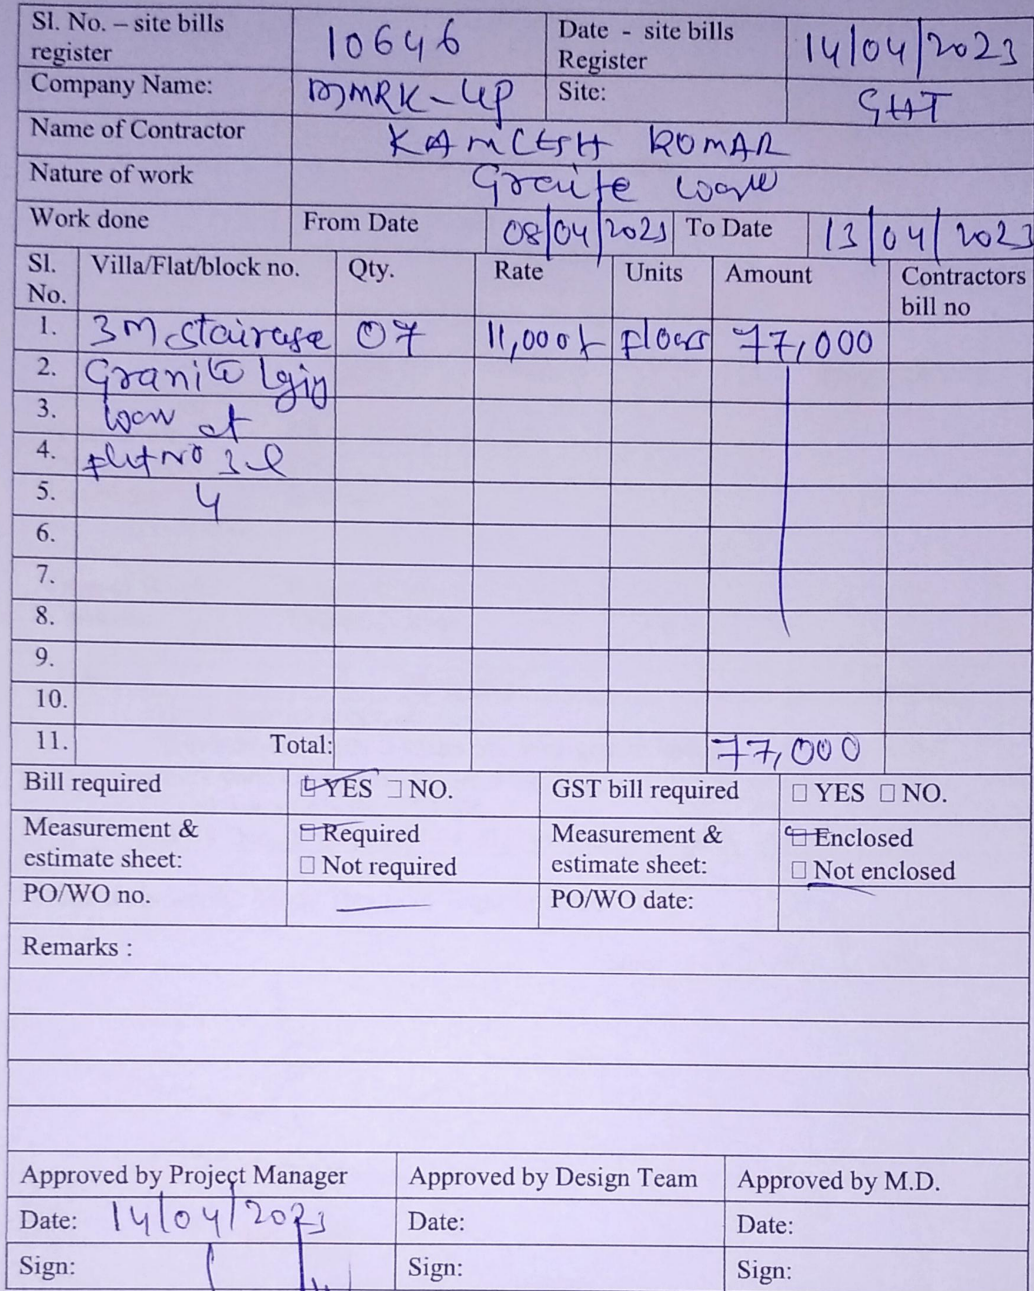 Sl. No. – site bills register 10646 Date - site bills Register 14/04/2023
Company Name: Site: GHT
Name of Contractor KAMLESH KUMAR
Nature of work
Work done From Date 08/04/2023 To Date 13/04/2023
Sl. No. Villa/Flat/block no. Qty. Rate Units Amount Contractors bill no
1. 07 11,000/- floors 77,000
2. Granite
3. at
4.
5. 4
6.
7.
8.
9.
10.
11. Total: 77,000
Bill required YES NO. GST bill required YES NO.
Measurement & estimate sheet: Required Not required Measurement & estimate sheet: Enclosed Not enclosed
PO/WO no. PO/WO date:
Remarks :
Approved by Project Manager Approved by Design Team Approved by M.D.
Date: 14/04/2023 Date: Date:
Sign: Sign: Sign: